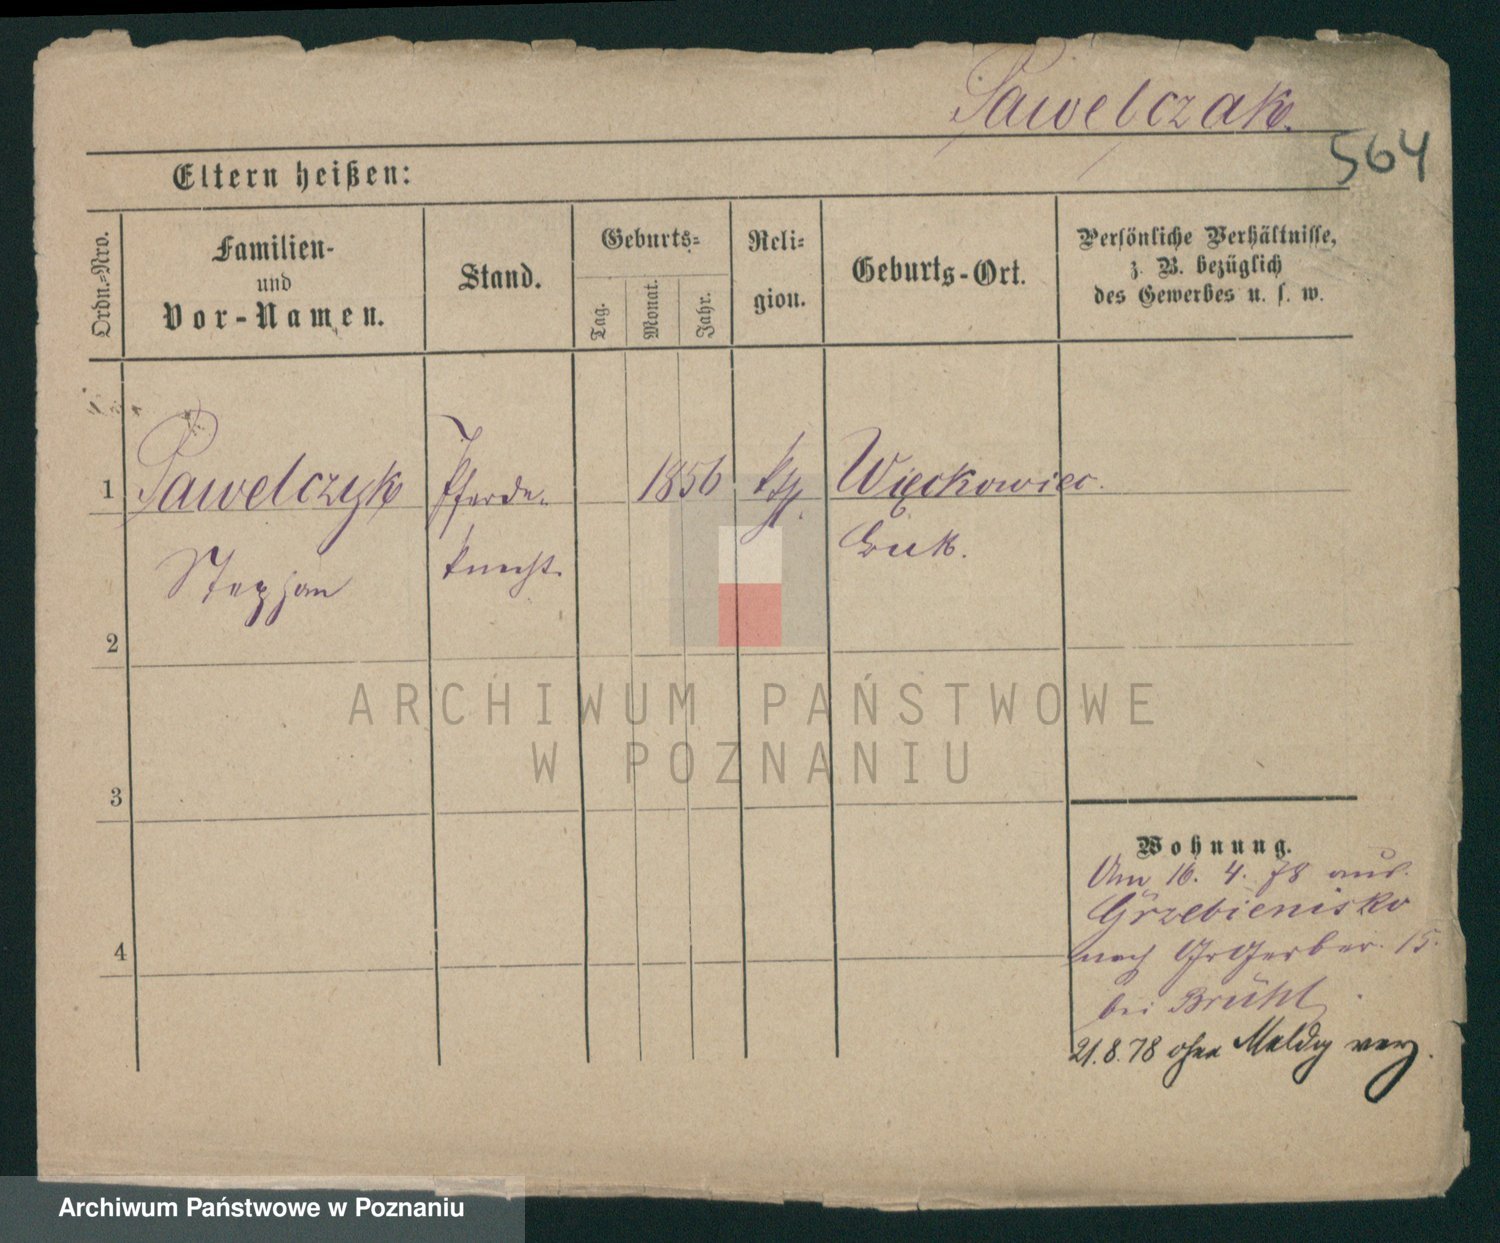 Pawelczak.
564
Eltern heißen:
Ordn.-Nro.
Familien-
und
Vor-Namen.
Stand.
Geburts-
Tag.
Monat.
Jahr.
Reli-
gion.
Geburts-Ort.
Persönliche Verhältnisse,
z. B. bezüglich
des Gewerbes u. s. w.
1
Pawelczyk
Stephan
Pferde-
knecht.
1856
kth.
Więckowiec.
Buk.
2
3
4
Wohnung.
Am 16. 4. 78 aus.
Grzebienisko
nach Gr Gerber. 15.
bei Brühl.
21. 8. 78 ohne Meldg verz.
ARCHIWUM PAŃSTWOWE
W POZNANIU
Archiwum Państwowe w Poznaniu